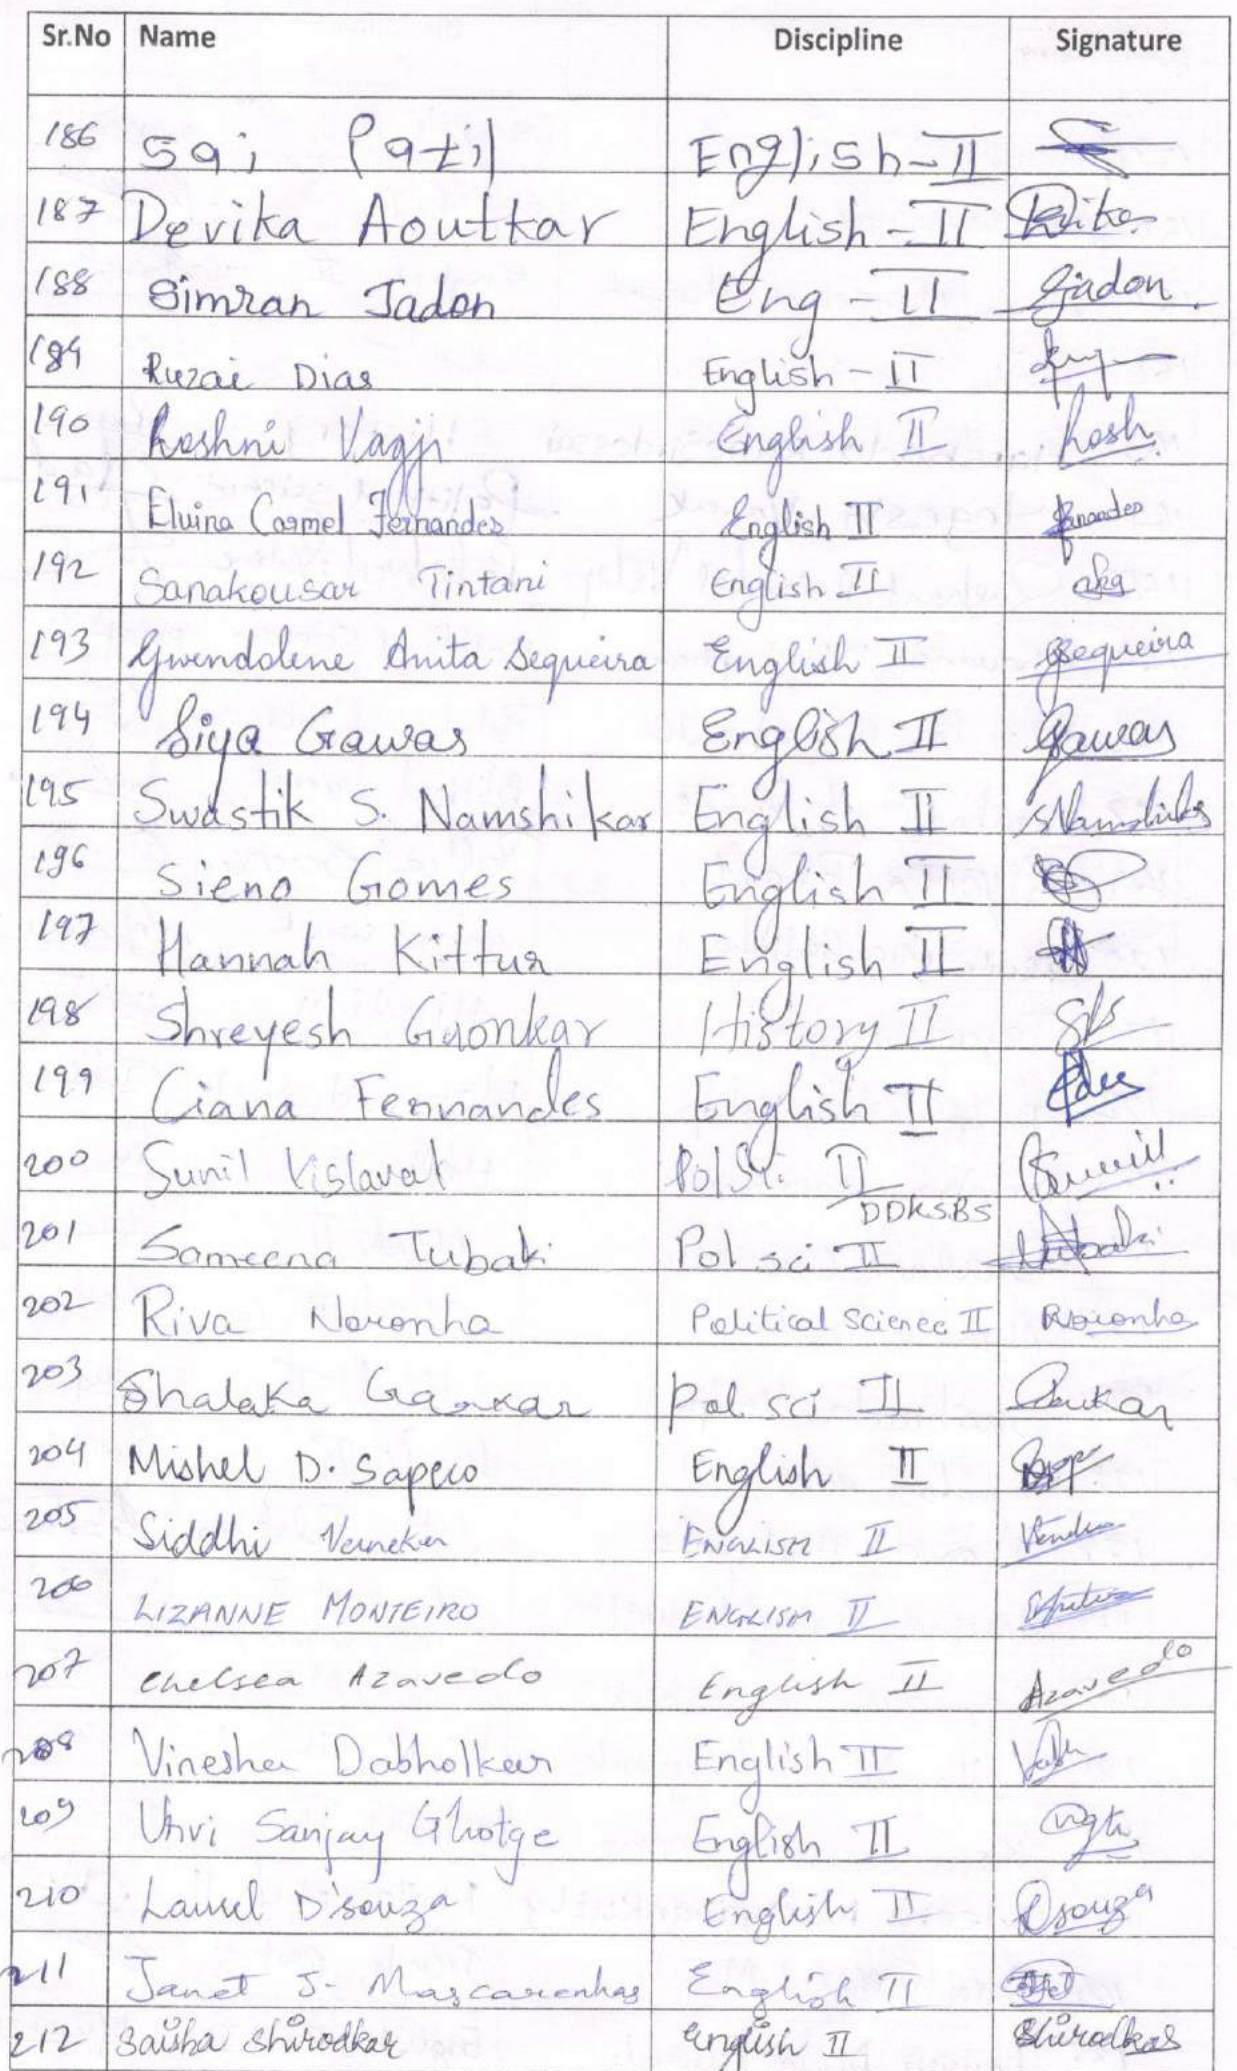 Sr.No Name Discipline Signature
186 Sai Patil English-II
187 Devika Aoutkar English-II
188 Simran Jadon Eng-II Sjadon
189 Ruzai Dias English-II
190 Roshni Vagji English II Rosh
191 Elvina Carmel Fernandes English II Fernandes
192 Sanakousar Tintani English II
193 Gwendolene Anita Sequeira English II GSequeira
194 Siya Gawas English II Gawas
195 Swastik S. Namshikar English II SNamshikar
196 Siena Gomes English II
197 Hannah Kittur English II
198 Shreyesh Gaonkar History II
199 Ciana Fernandes English II
200 Sunil Vislavat Pol Sci. II Sunil
DDKSBS
201 Sameena Tubaki Pol sci II Tubaki
202 Riva Noronha Political Science II RNoronha
203 Shalaka Gaonkar Pol sci II
204 Mishel D. Sapeco English II
205 Siddhi Verneker ENGLISH II
206 LIZANNE MONTEIRO ENGLISH II
207 Chelsea Azavedo English II Azavedo
208 Vinesha Dabholkar English II
209 Urvi Sanjay Ghotge English II
210 Laurel D'souza English II Dsouza
211 Janet J. Mascarenhas English II
212 Saisha Shirodkar English II Shirodkar